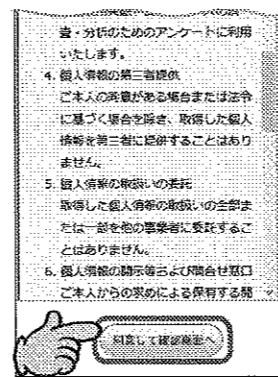 査・分析のためのアンケートに利用
いたします。
4. 個人情報の第三者提供
ご本人の同意がある場合または法令
に基づく場合を除き、取得した個人
情報を第三者に提供することはあり
ません。
5. 個人情報の取扱いの委託
取得した個人情報の取扱いの全部ま
たは一部を他の事業者に委託するこ
とはありません。
6. 個人情報の開示等および問合せ窓口
ご本人からの求めによる保有する開
同意して確認画面へ